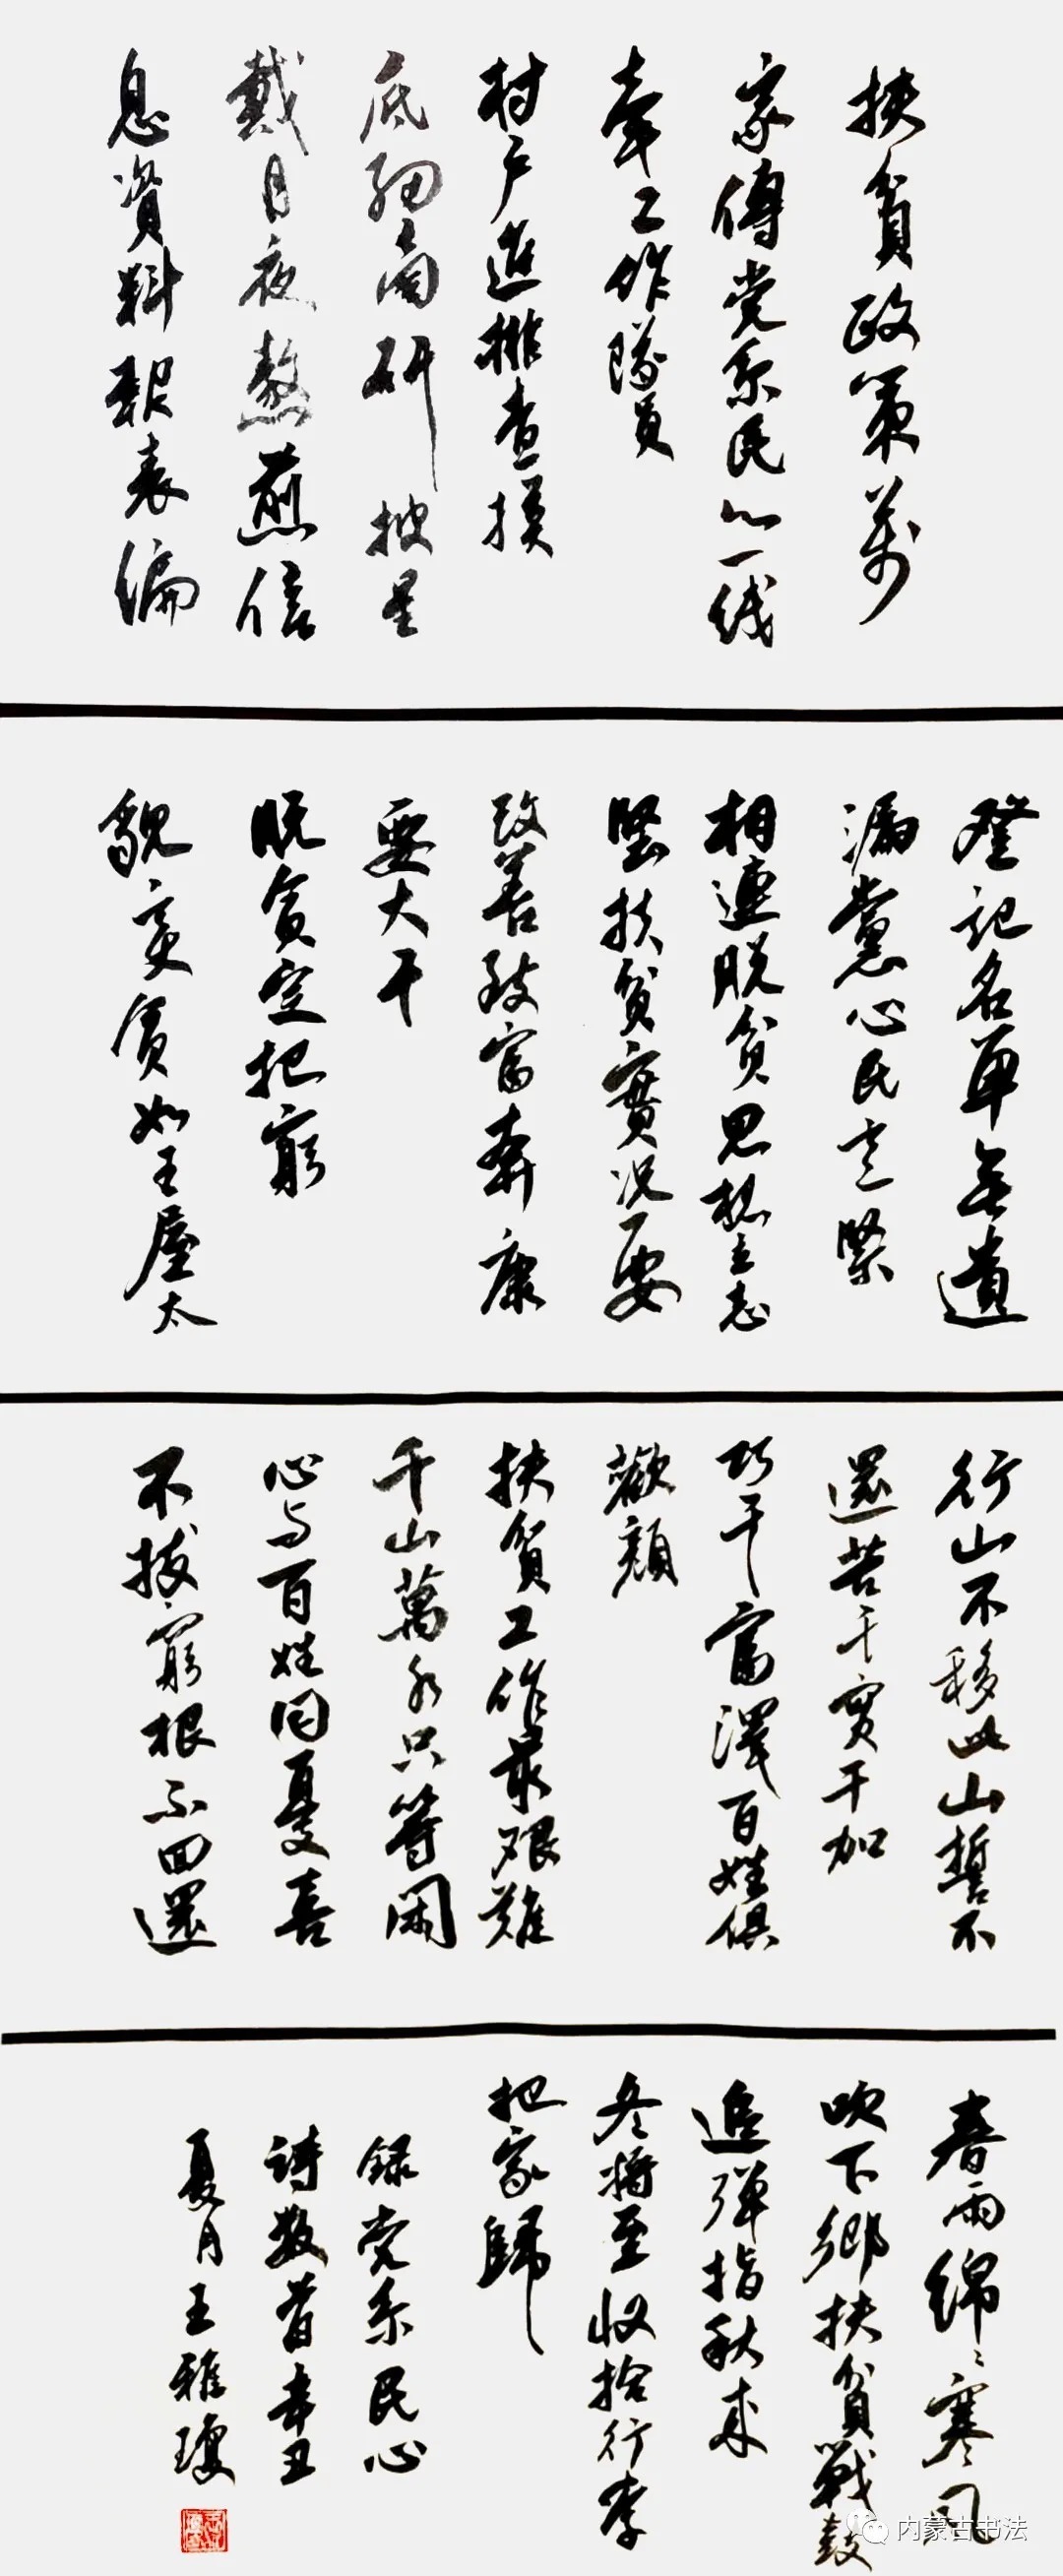 扶贫政策万
家傳党系民心一线
牵工作隊員
村户進排查摸
底细南研披星
戴月夜熬煎信
息資料报表编
登记名單無遺
漏黨心民意緊
相連脱贫思想立志
堅扶贫實况要
改善致富奔康
要大干
脱贫定把窮
貌变實如王屋太
行山不移此山誓不
還苦干實干加
巧干富澤百姓俱
歡顔
扶贫工作最艰難
千山萬水只等闲
心与百姓同憂喜
不拔窮根不回還
春雨綿〻寒风
吹下鄉扶贫戰鼓
追弹指秋来
冬将至收拾行李
把家歸
録党系民心
詩数首辛丑
夏月王雅瓊
内蒙古书法